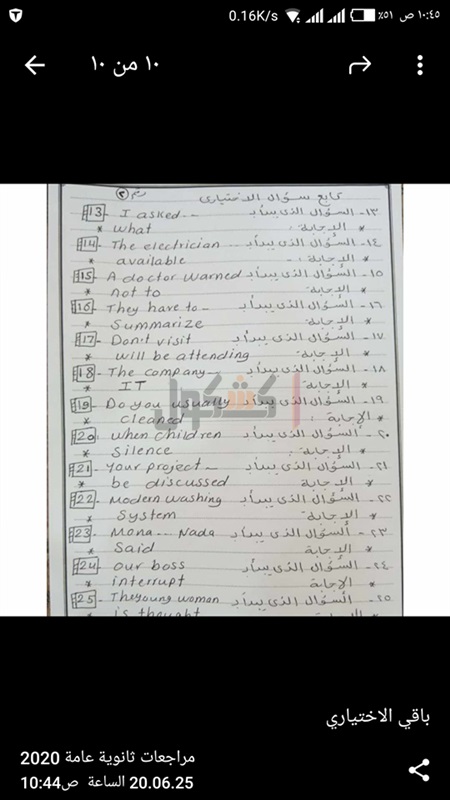 0.16K/s ١٠:٤٥ ص ٥١٪
١٠ من ١٠
تابع سؤال الاختيارى رقم ٢
13 - I asked -- ١٣- السؤال الذى يبدأ بـ
* what * الإجابة :
14 - The electrician -- ١٤- السؤال الذى يبدأ بـ
* available * الإجابة :-
15 - A doctor warned ١٥- السؤال الذى يبدأ بـ
* not to * الإجابة
16 - They have to - ١٦- السؤال الذى يبدأ بـ
* Summarize * الإجابة :
17 - Don't visit ١٧- السؤال الذى يبدأ بـ
* will be attending * الإجابة
18 - The company -- ١٨- السؤال الذى يبدأ بـ
* IT * الإجابة
19 - Do you usually ١٩- السؤال الذى يبدأ بـ
* cleaned * الإجابة :
20 - when children ٢٠- السؤال الذى يبدأ بـ
* silence * الإجابة :
21 - your project - ٢١- السؤال الذى يبدأ بـ
* be discussed * الإجابة
22 - Modern washing ٢٢- السؤال الذى يبدأ بـ
* System * الإجابة
23 - Mona -- Nada ٢٣- السؤال الذى يبدأ بـ
* Said * الإجابة
24 - our boss ٢٤- السؤال الذى يبدأ بـ
* interrupt * الإجابة
25 - The young woman ٢٥- السؤال الذى يبدأ بـ
* is thought
كشكول
باقي الاختياري
مراجعات ثانوية عامة 2020
20.06.25 الساعة 10:44ص